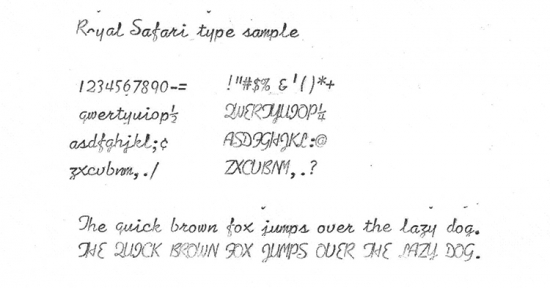 Royal Safari type sample
1234567890-= !"#$% &'()*+
qwertyuiop½ QWERTYUIOP¼
asdfghjkl;¢ ASDFGHJKL:@
zxcvbnm,./ ZXCVBNM,.?
The quick brown fox jumps over the lazy dog.
THE QUICK BROWN FOX JUMPS OVER THE LAZY DOG.